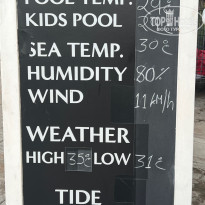 POOL TEMP.
KIDS POOL
SEA TEMP. 30°
HUMIDITY 80%
WIND 11 KM/h
WEATHER
HIGH 35° LOW 31°
TIDE